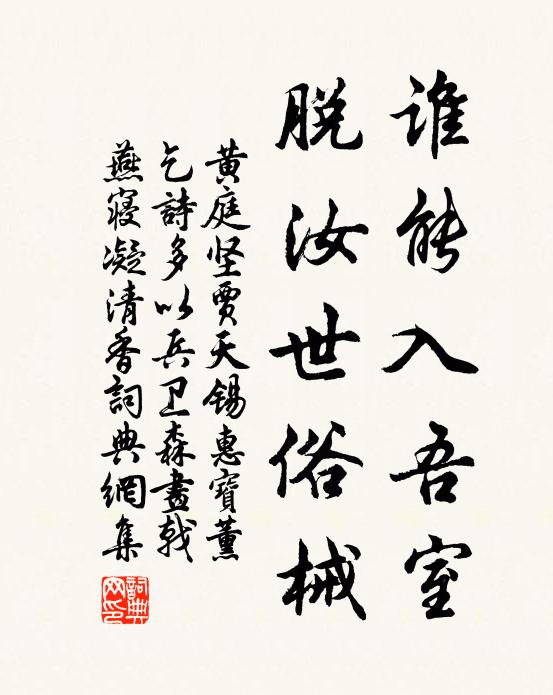 谁能入吾室
脱汝世俗械
黄庭坚贾天锡惠寶薰
乞詩多以兵卫森畫戟
燕寝凝清香詞典網集
詞典
网印